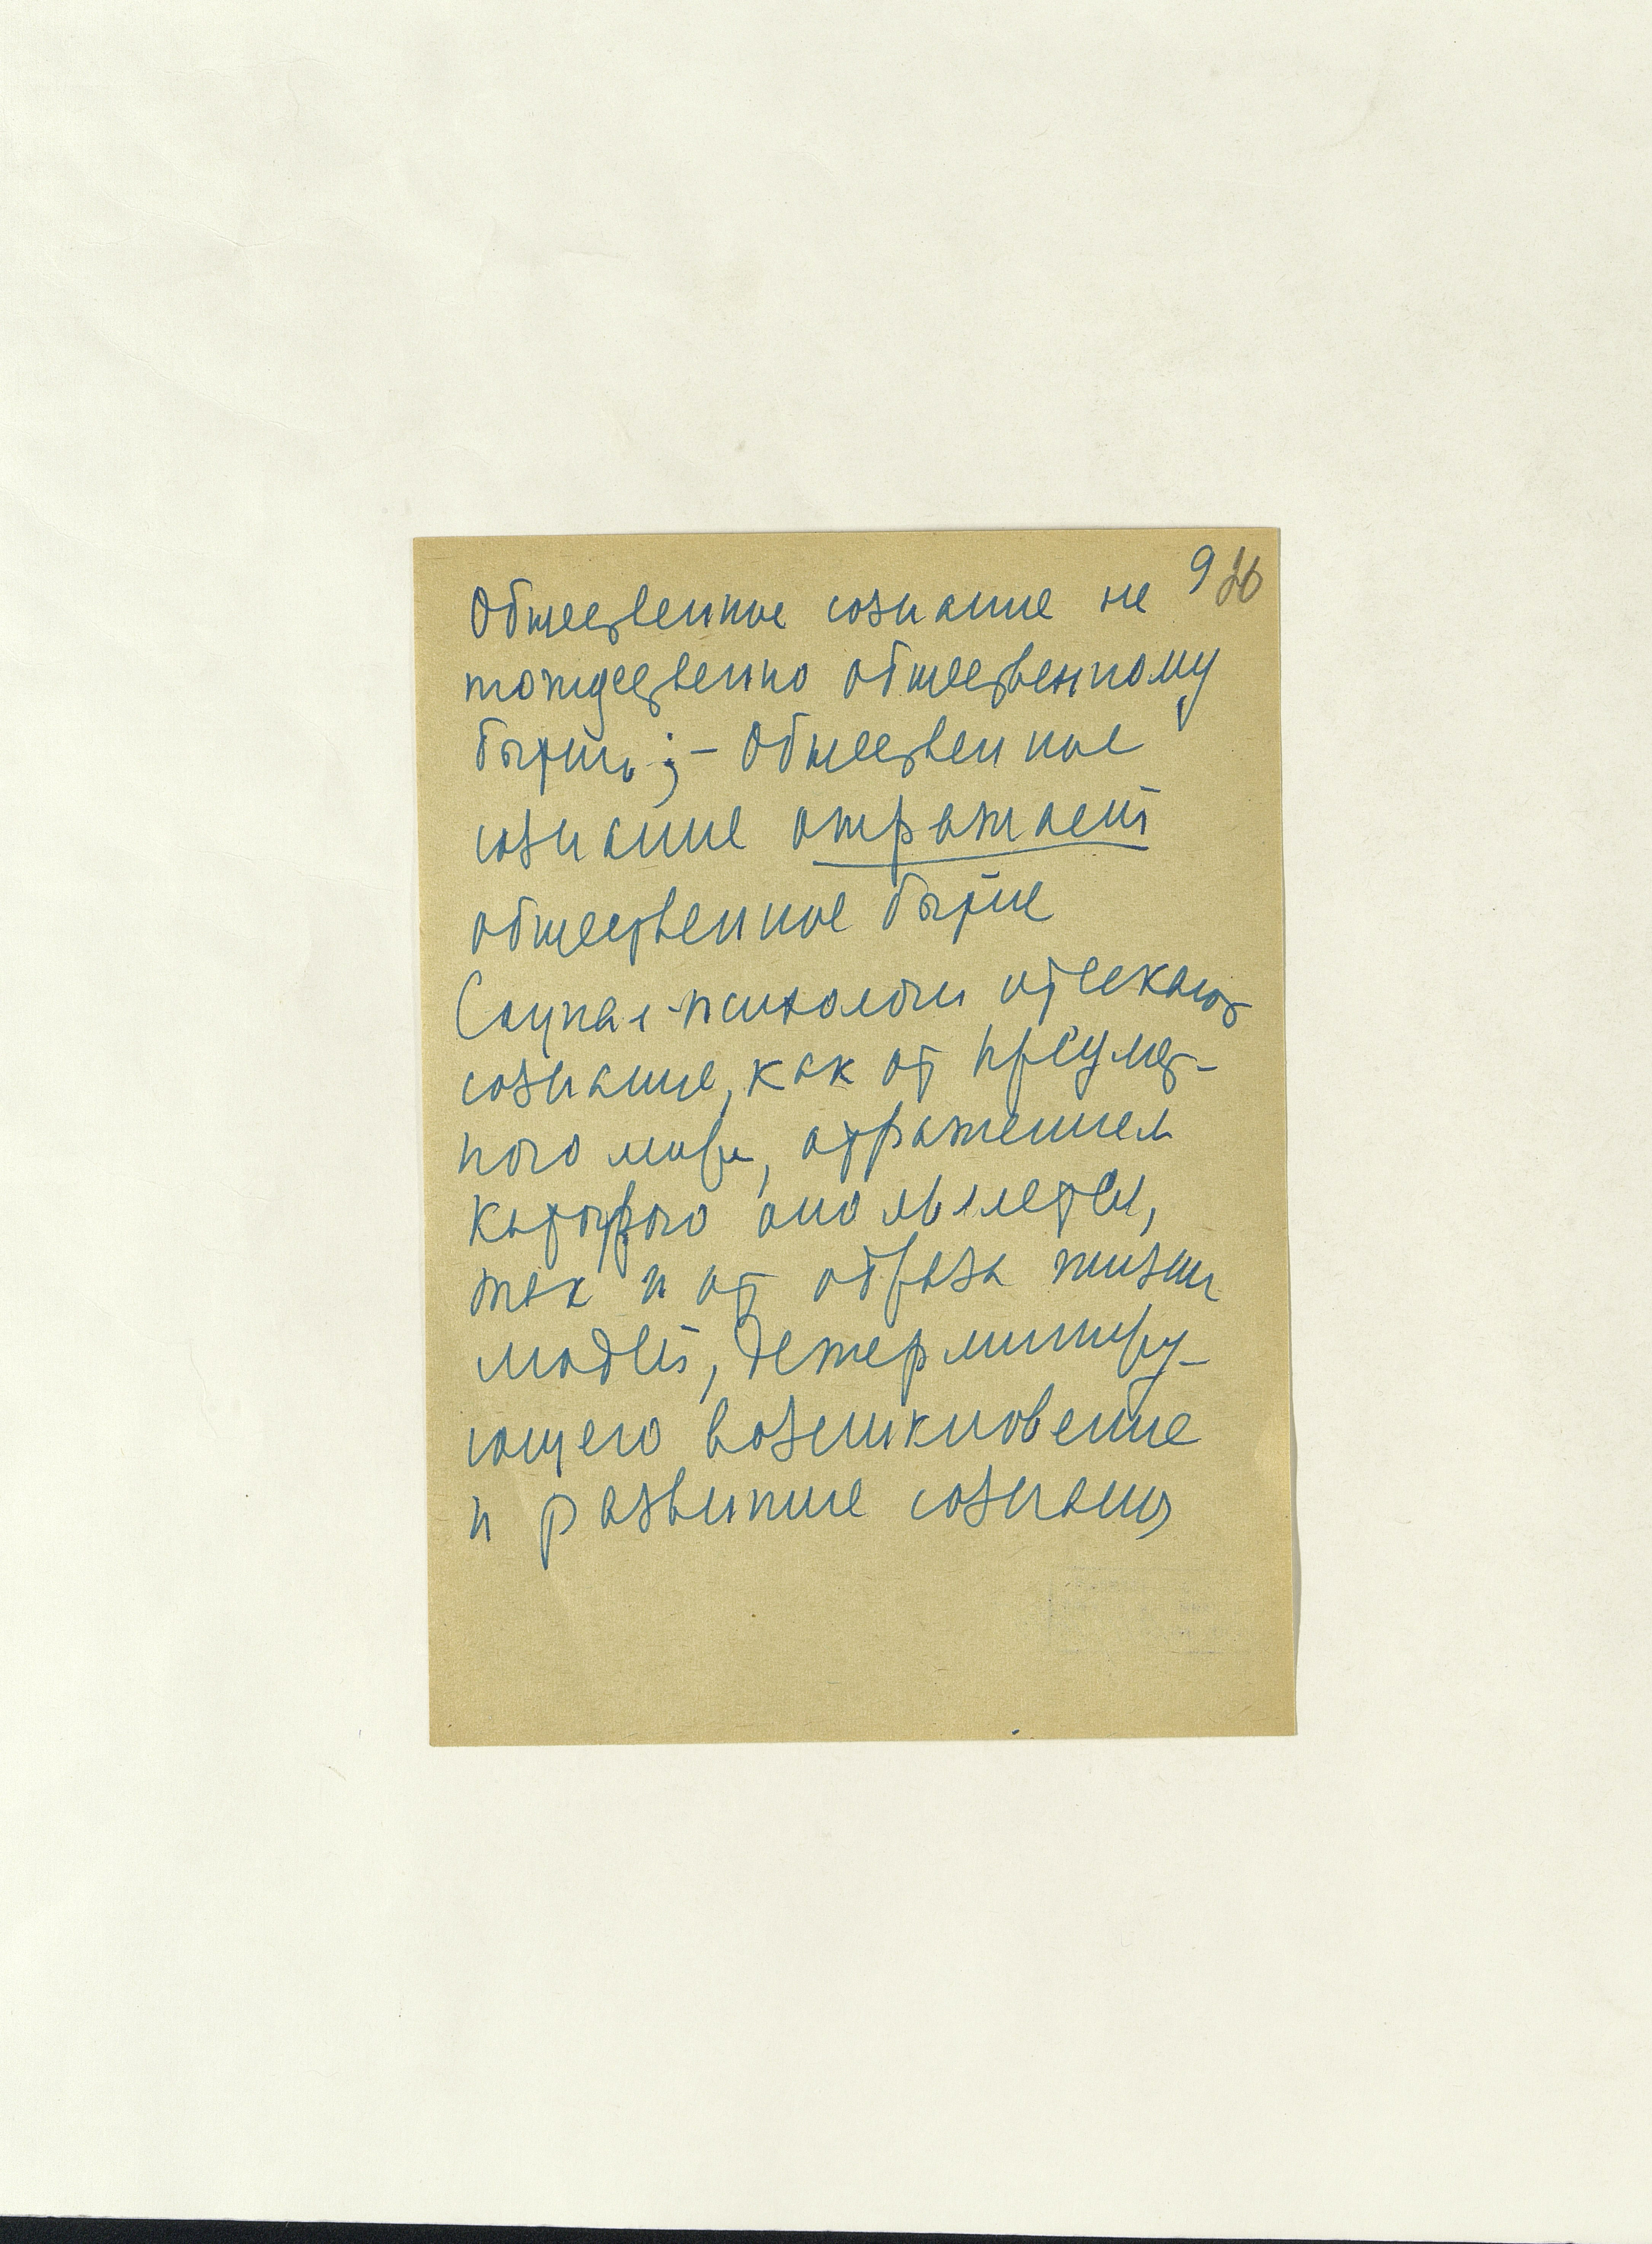 9 26
Общественное сознание не
тождественно общественному
бытию; – Общественное
сознание отражает
общественное бытие
Социал-психологи отсекают
сознание, как от предмет-
ного мира, отражением
которого оно является,
так и от образа жизни
людей, детерминиру-
ющего возникновение
и развитие сознания